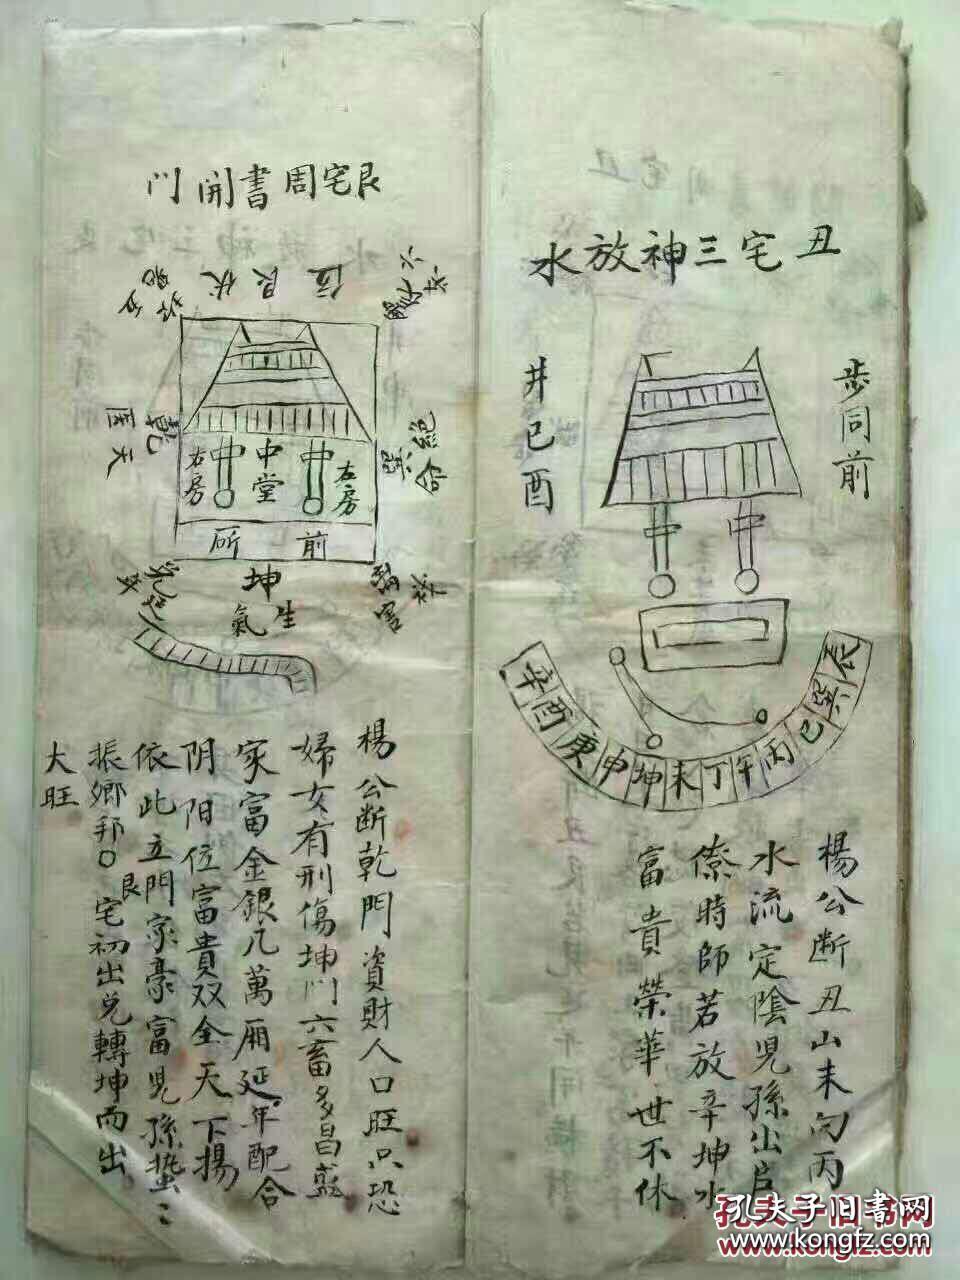 丑宅三神放水
步同前
井巳酉
中
中
辛酉庚申坤未丁午丙巳巽
楊公断丑山未向丙
水流定陰児孫出官
僚時師若放辛坤水
富貴榮華世不休
艮宅周書開門
位艮伏
乾
天医
巽
絶命
中
中
右房
中堂
左房
前
所
坤
生氣
兌延年
離
禍害
楊公断乾門資財人口旺只恐
婦女有刑傷坤門六畜多昌盛
家富金銀几萬厢延年配合
阴阳位富貴双全天下揚
依此立門家豪富児孫蛰〻
振鄉邦〇艮宅初出兌轉坤而出
大旺
孔夫子旧书网
www.kongfz.com